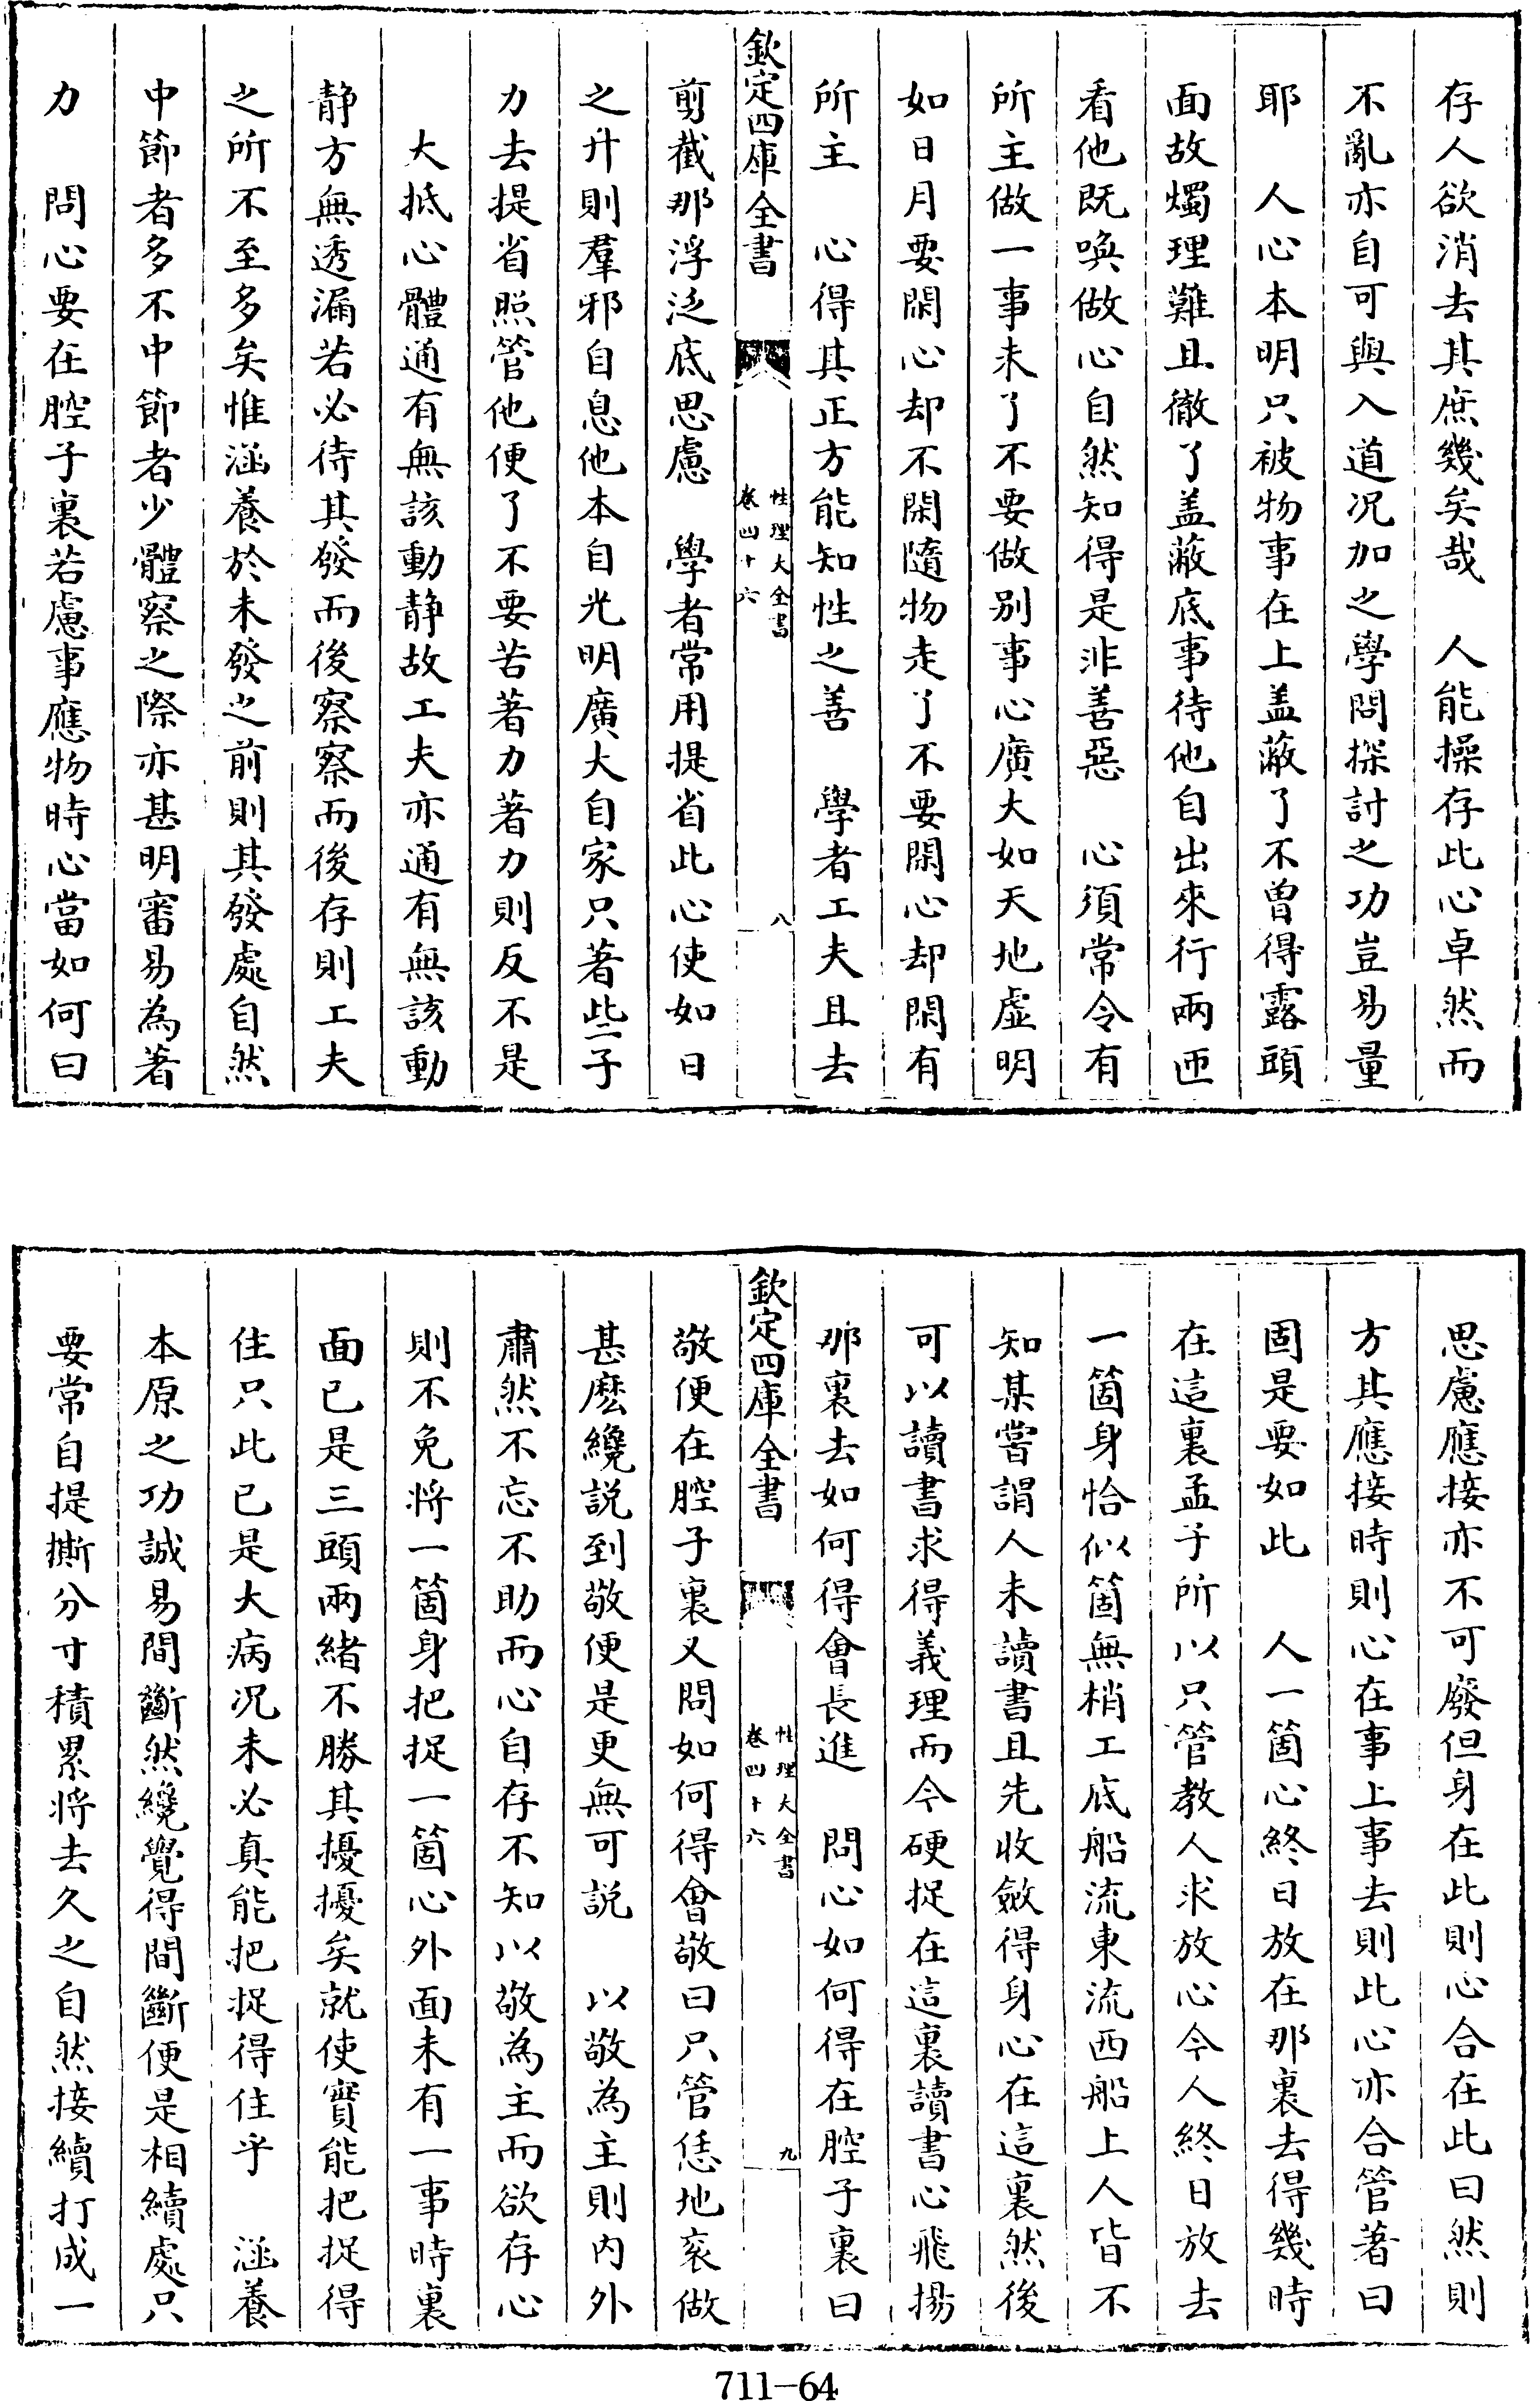 存人欲消去其庶幾矣哉　人能操存此心卓然而
不亂亦自可與入道况加之學問探討之功豈易量
耶　人心本明只被物事在上盖蔽了不曾得露頭
面故燭理難且徹了盖蔽底事待他自出來行兩匝
看他既喚做心自然知得是非善惡　心須常令有
所主做一事未了不要做别事心廣大如天地虚明
如日月要閑心却不閑隨物走了不要閑心却閑有
所主　心得其正方能知性之善　學者工夫且去
欽定四庫全書
性理大全書
卷四十六
八
剪截那浮泛底思慮　學者常用提省此心使如日
之升則羣邪自息他本自光明廣大自家只著些子
力去提省照管他便了不要苦著力著力則反不是
大抵心體通有無該動静故工夫亦通有無該動
静方無透漏若必待其發而後察察而後存則工夫
之所不至多矣惟涵養於未發之前則其發處自然
中節者多不中節者少體察之際亦甚明審易為著
力　問心要在腔子裏若慮事應物時心當如何曰
思慮應接亦不可廢但身在此則心合在此曰然則
方其應接時則心在事上事去則此心亦合管著曰
固是要如此　人一箇心終日放在那裏去得幾時
在這裏孟子所以只管教人求放心今人終日放去
一箇身恰似箇無梢工底船流東流西船上人皆不
知某嘗謂人未讀書且先收斂得身心在這裏然後
可以讀書求得義理而今硬捉在這裏讀書心飛揚
那裏去如何得會長進　問心如何得在腔子裏曰
欽定四庫全書
性理大全書
卷四十六
九
敬便在腔子裏又問如何得會敬曰只管恁地衮做
甚麽纔説到敬便是更無可説　以敬為主則内外
肅然不忘不助而心自存不知以敬為主而欲存心
則不免将一箇身把捉一箇心外面未有一事時裏
面已是三頭兩緒不勝其擾擾矣就使實能把捉得
住只此已是大病况未必真能把捉得住乎　涵養
本原之功誠易間斷然纔覺得間斷便是相續處只
要常自提撕分寸積累将去久之自然接續打成一
711-64